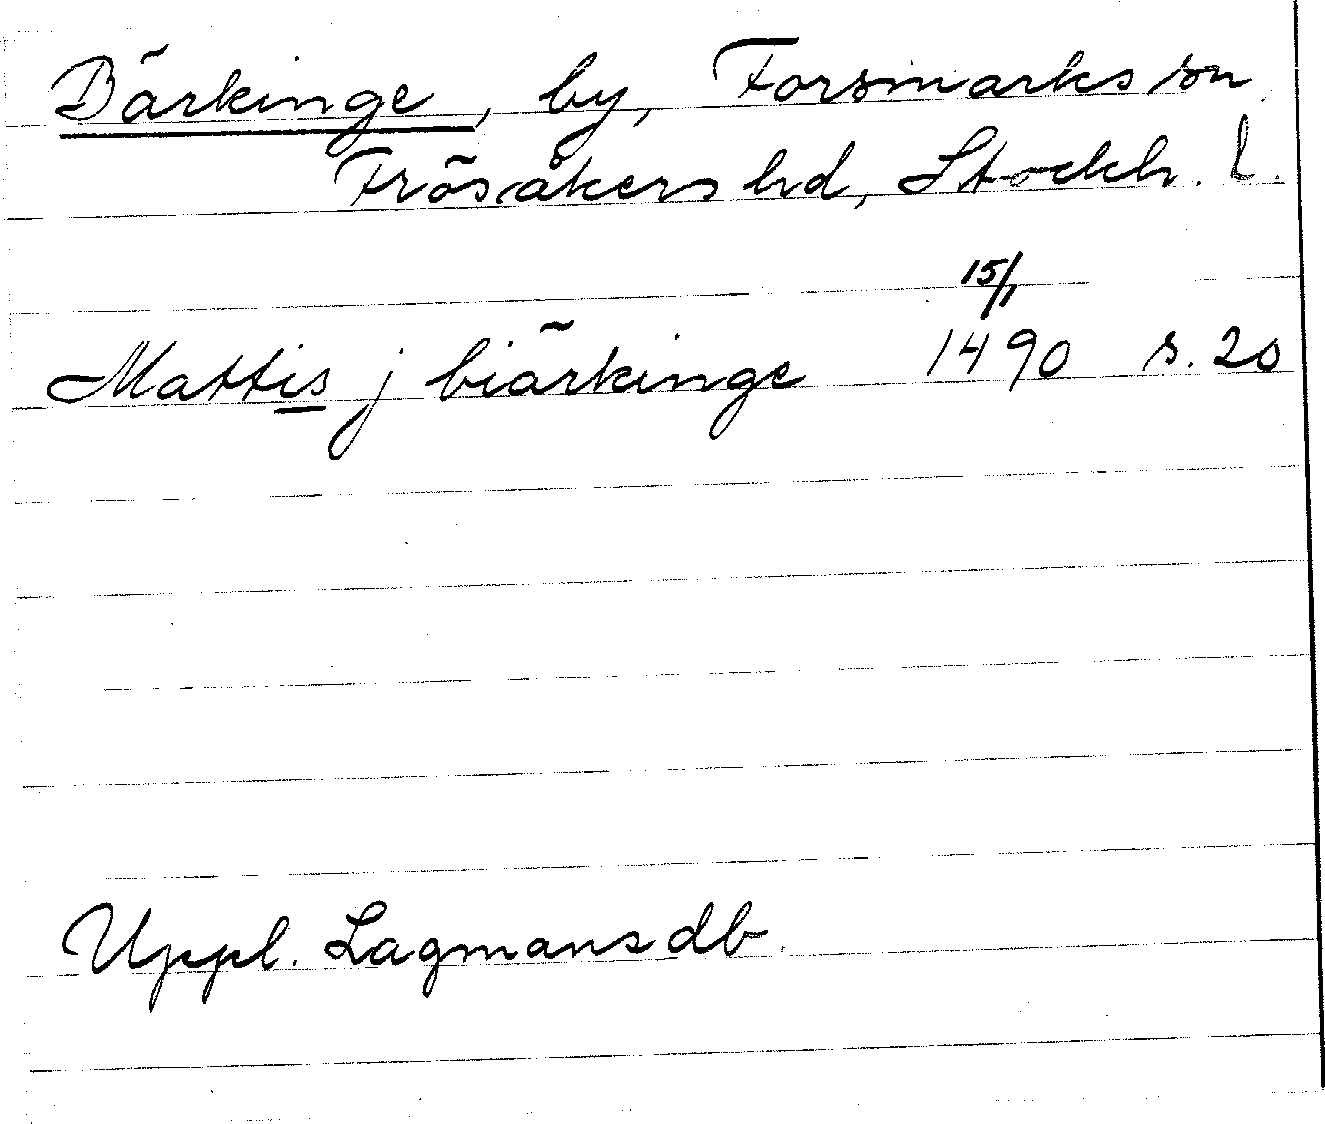 Bärkinge, by, Forsmarks sn
Frösåkers hd, Stockh. l.
15/1
Mattis j biärkinge 1490 s. 20
Uppl. Lagmansdb.